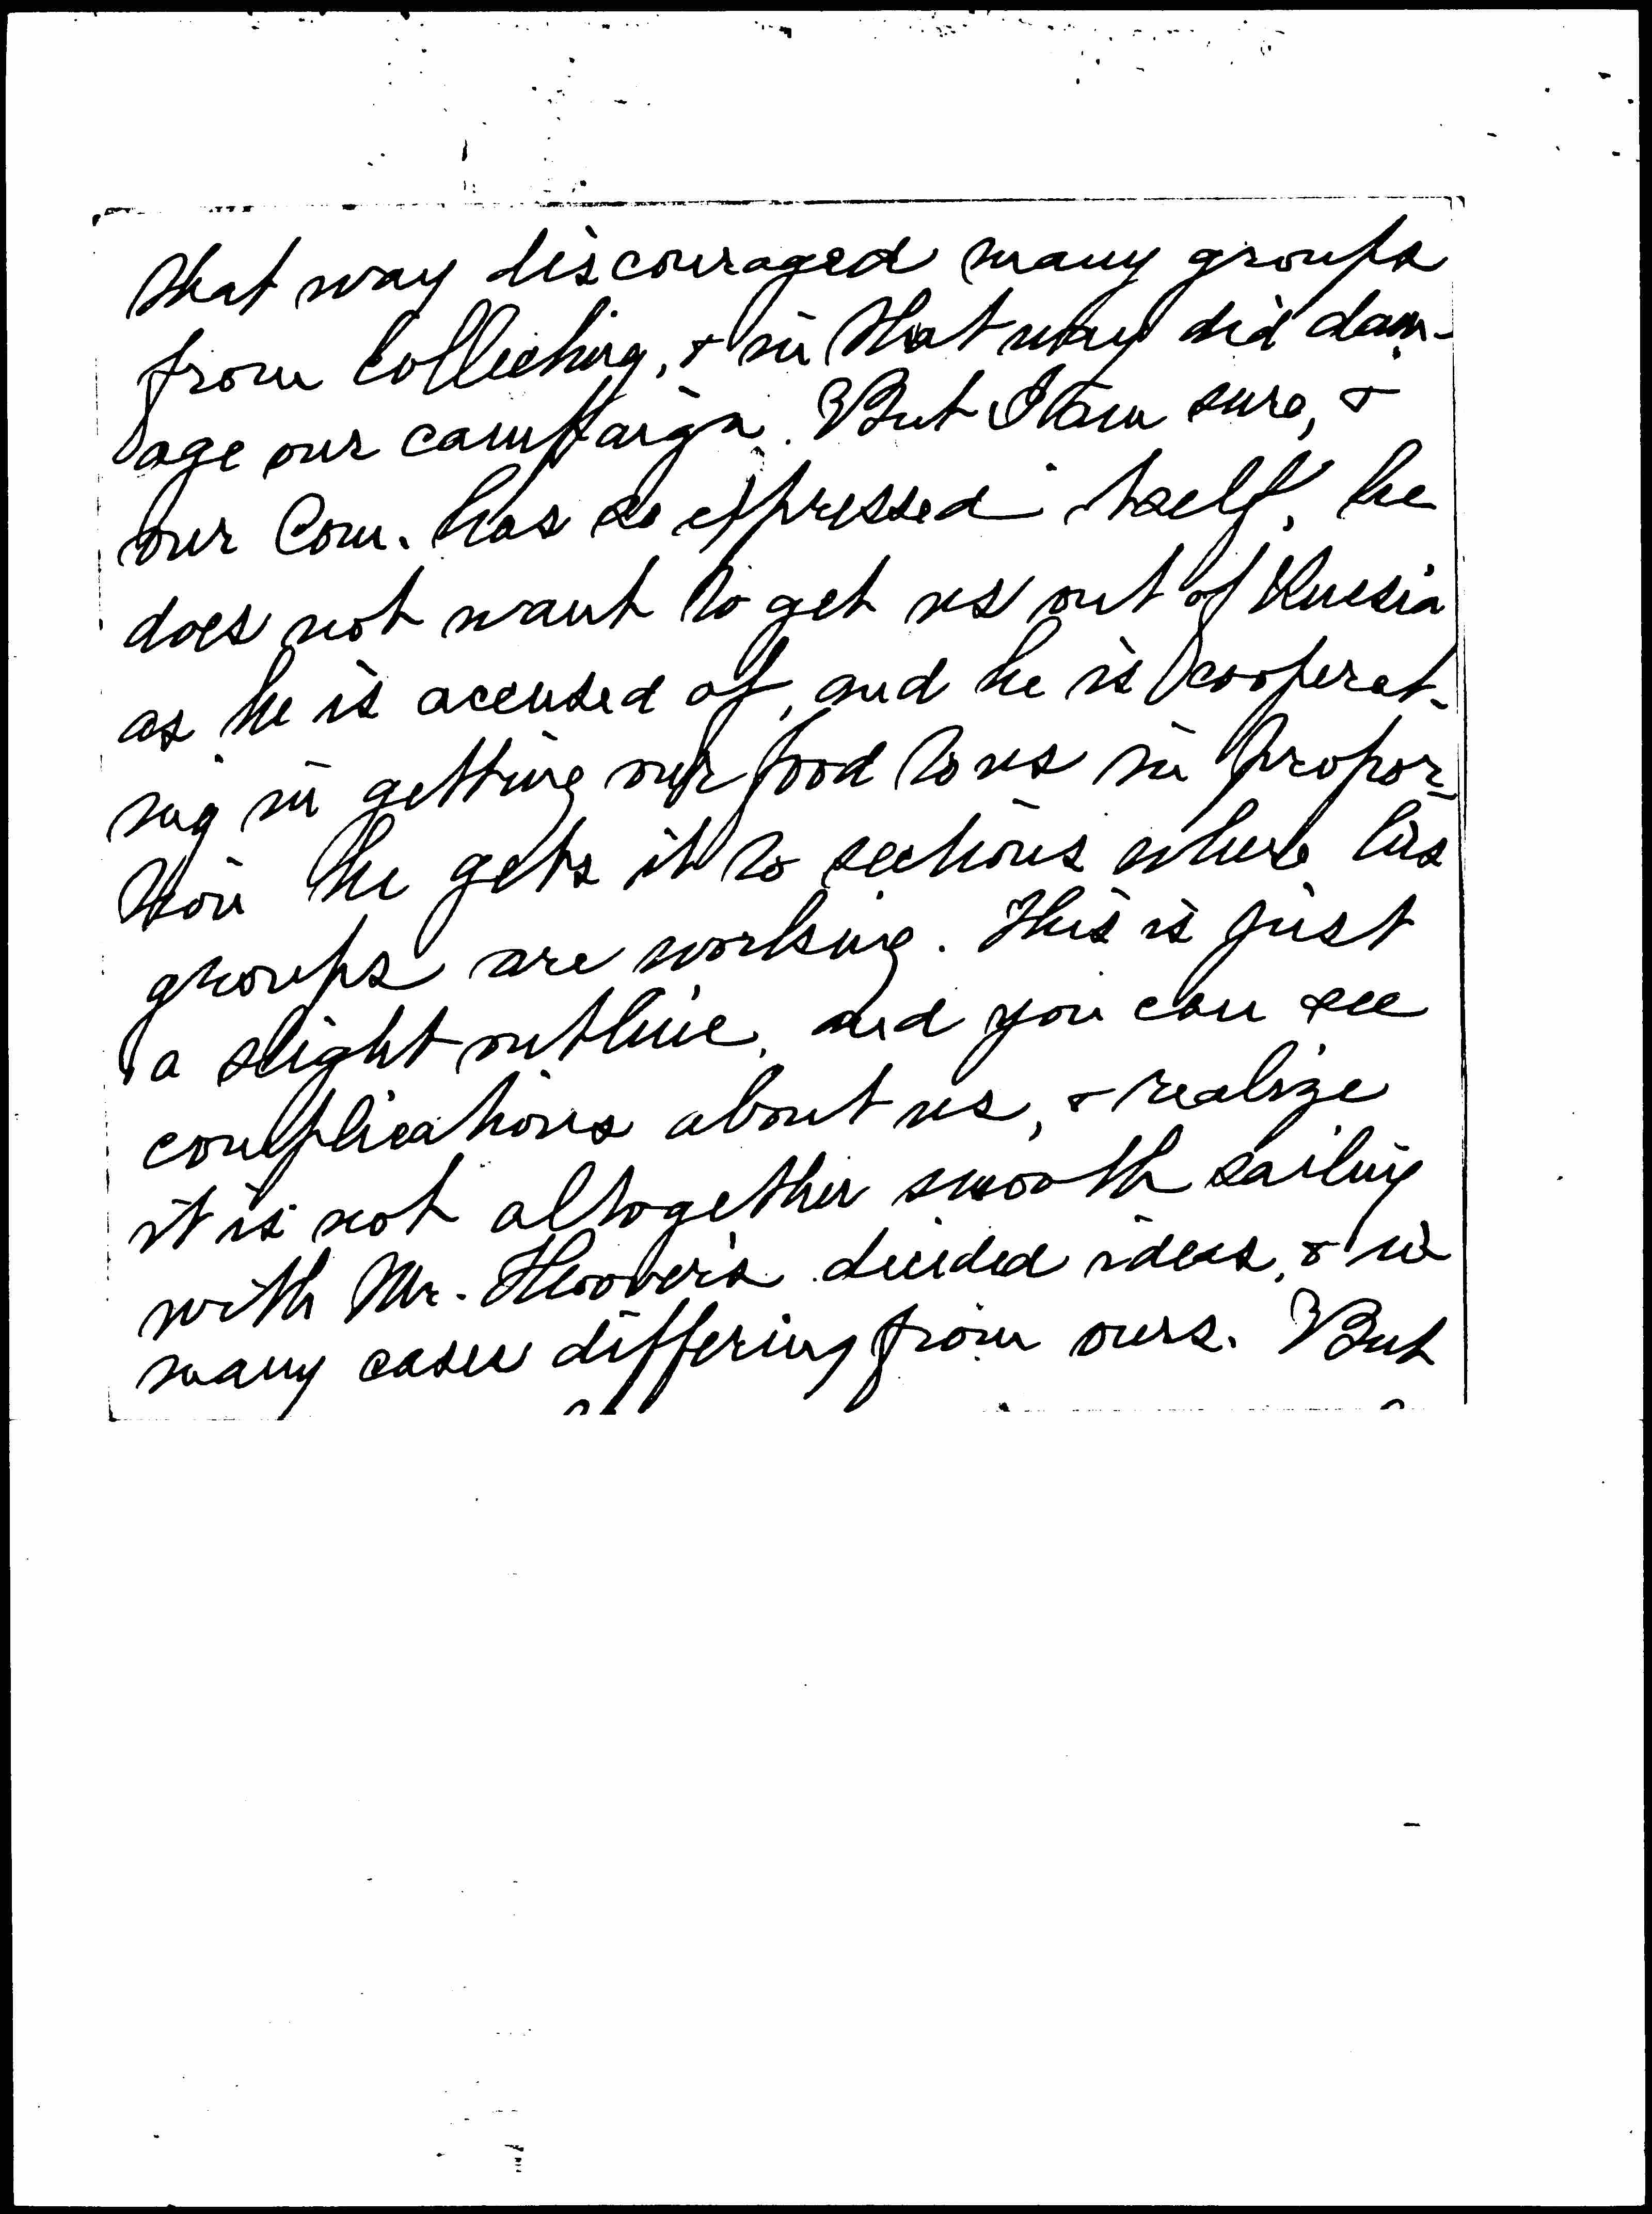 that way discouraged many groups
from collecting, & in that way did dam-
age our campaign. But I am sure, &
our Com. has so expressed itself, he
does not want to get us out of Russia
as he is accused of, and he is cooperat-
ing in getting our food to us in propor-
tion he gets it to sections where his
groups are working. This is just
a slight outline, and you can see
complications about us, & realize
it is not altogether smooth sailing
with Mr. Hoover's decided ideas, & in
many cases differing from ours. But